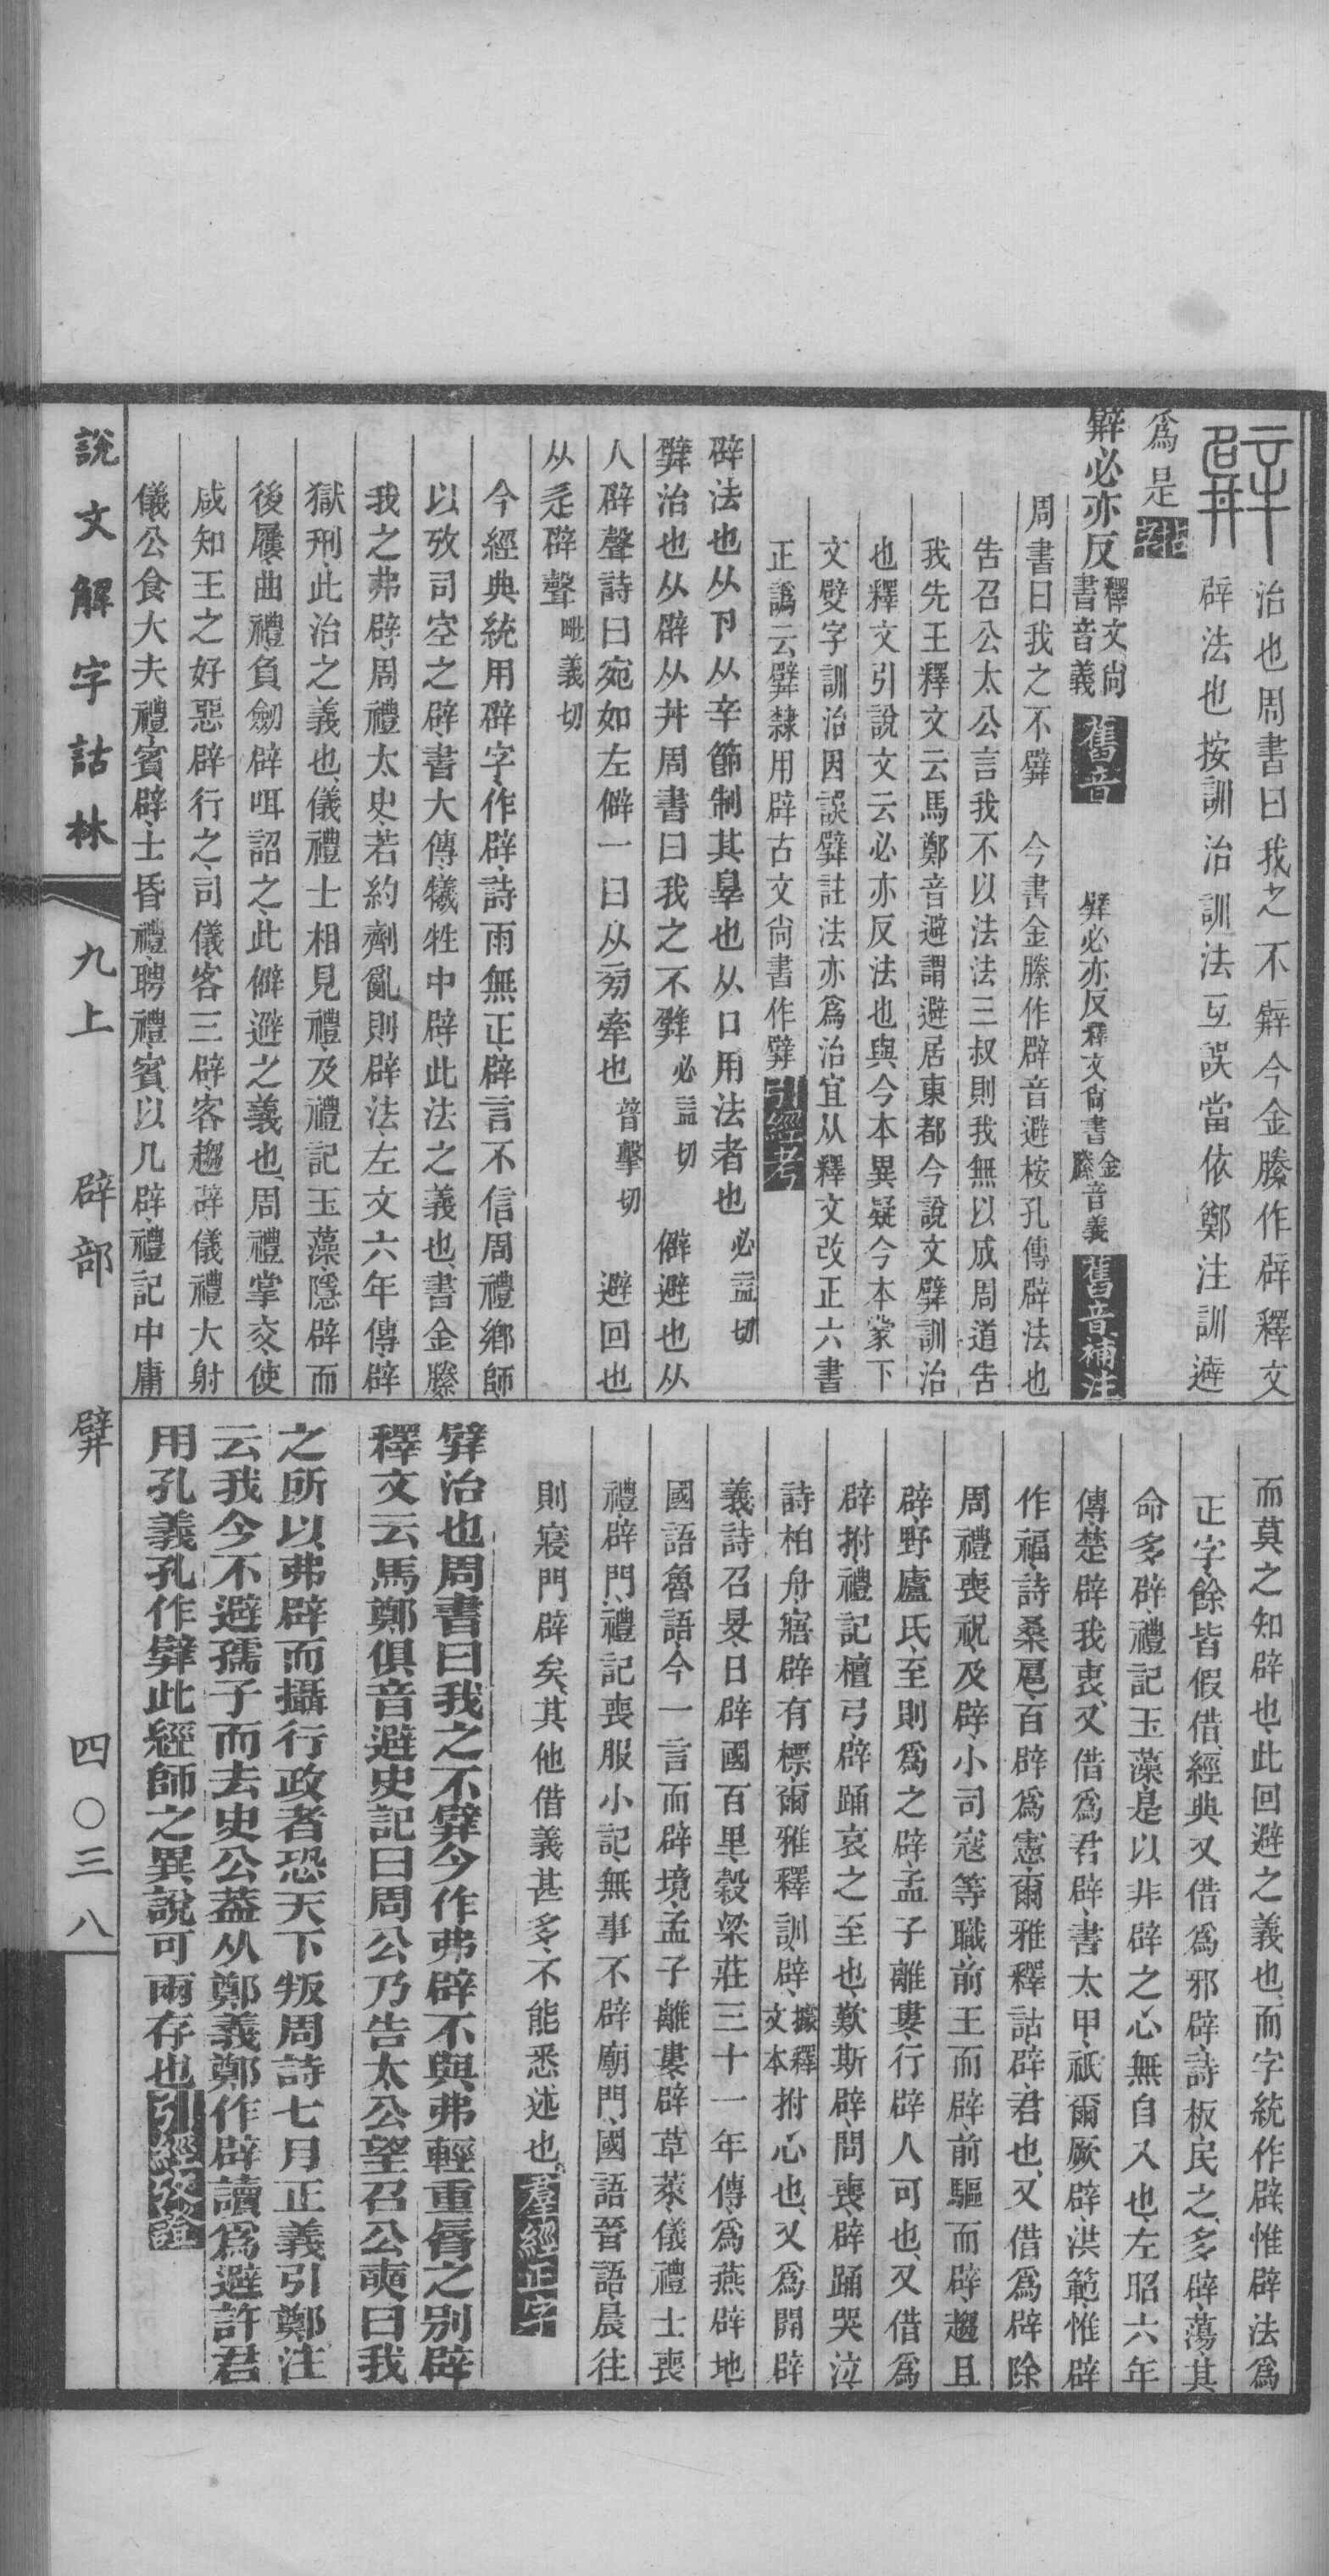 治也周書曰我之不㢸今金縢作辟釋文
辟法也按訓治訓法互誤當依鄭注訓遊
爲是
㢸必亦反釋文尙書音義舊音　㢸必亦反釋文尙書金縢音義舊音補注
周書曰我之不㢸　今書金縢作辟音避桉孔傳辟法也
告召公太公言我不以法法三叔則我無以成周道告
我先王釋文云馬鄭音避謂避居東都今說文㢸訓治
也釋文引說文云必亦反法也與今本異疑今本蒙下
文嬖字訓治因誤㢸註法亦爲治宜从釋文改正六書
正譌云㢸隸用辟古文尙書作㢸引經考
辟法也从卩从辛節制其辠也从口用法者也必益切
㢸治也从辟从井周書曰我之不㢸必益切　僻避也从
人辟聲詩曰宛如左僻一曰从㫄牽也普擊切　避回也
从辵辟聲毗義切
今經典統用辟字作辟詩雨無正辟言不信周禮鄉師
以攷司空之辟書大傳犧牲中辟此法之義也書金縢
我之弗辟周禮太史若約劑亂則辟法左文六年傳辟
獄刑此治之義也儀禮士相見禮及禮記玉藻隱辟而
後屨曲禮負劒辟咡詔之此僻避之義也周禮掌交使
咸知王之好惡辟行之司儀客三辟客趨辟儀禮大射
儀公食大夫禮賓辟士昏禮聘禮賓以几辟禮記中庸
而莫之知辟也此回避之義也而字統作辟惟辟法爲
正字餘皆假借經典又借爲邪辟詩板民之多辟蕩其
命多辟禮記玉藻是以非辟之心無自入也左昭六年
傳楚辟我衷又借爲君辟書太甲祇爾厥辟洪範惟辟
作福詩桑扈百辟爲憲爾雅釋詁辟君也又借爲辟除
周禮喪祝及辟小司寇等職前王而辟前驅而辟趨且
辟野廬氏至則爲之辟孟子離婁行辟人可也又借爲
辟拊禮記檀弓辟踊哀之至也歎斯辟問喪辟踊哭泣
詩柏舟寤辟有摽爾雅釋訓辟據釋文本拊心也又爲開辟
義詩召旻日辟國百里穀梁莊三十一年傳爲燕辟地
國語魯語今一言而辟境孟子離婁辟草萊儀禮士喪
禮辟門禮記喪服小記無事不辟廟門國語晉語晨往
則寢門辟矣其他借義甚多不能悉述也羣經正字
㢸治也周書曰我之不㢸今作弗辟不與弗輕重脣之別辟
釋文云馬鄭俱音避史記曰周公乃告太公望召公奭曰我
之所以弗辟而攝行政者恐天下叛周詩七月正義引鄭注
云我今不避孺子而去史公葢从鄭義鄭作辟讀爲避許君
用孔義孔作㢸此經師之異說可兩存也引經證
說文解字詁林　九上　辟部　㢸　四〇三八